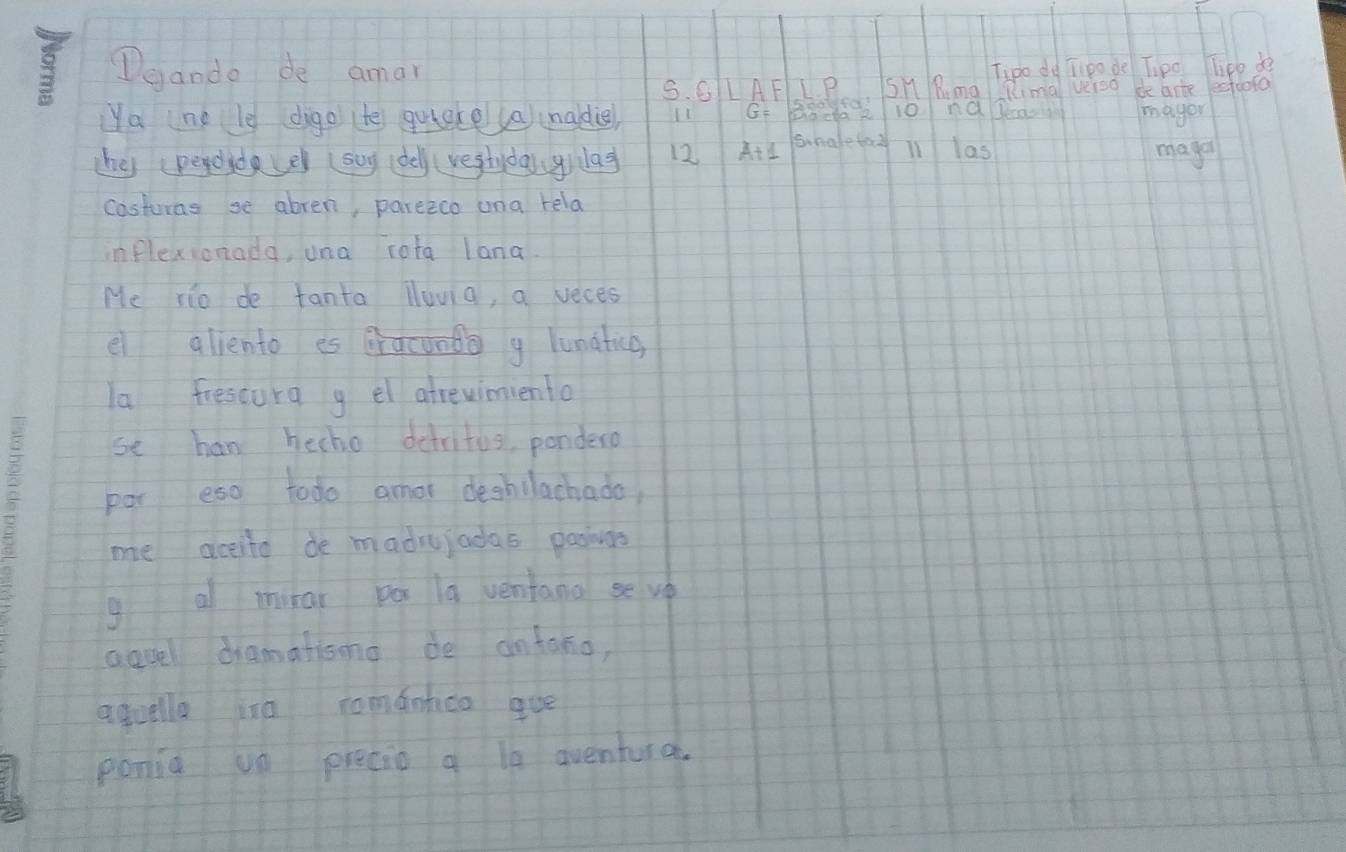 Dejando de amar
S.G L.A.F L.P. SM Rima Tipo de Rima Tipo de verso Tipo de arte Tipo de
Ya no le digo te quiero a nadie, 11 G= 10 na mayor
he perdido el sug del vestido y las 12 A+1 11 las mayor
costuras se abren, parezco una tela
inflexionada, una rota lana
Me río de tanta lluvia, a veces
el aliento es iracundo y lunático,
la frescura y el atrevimiento
se han hecho detritus, pondero
por eso todo amor deshilachado,
me aceito de madrujadas
y al mirar por la ventana se ve
aquel dramatismo de antaño,
aquella ira romántica que
ponía un precio a la aventura.
Norma